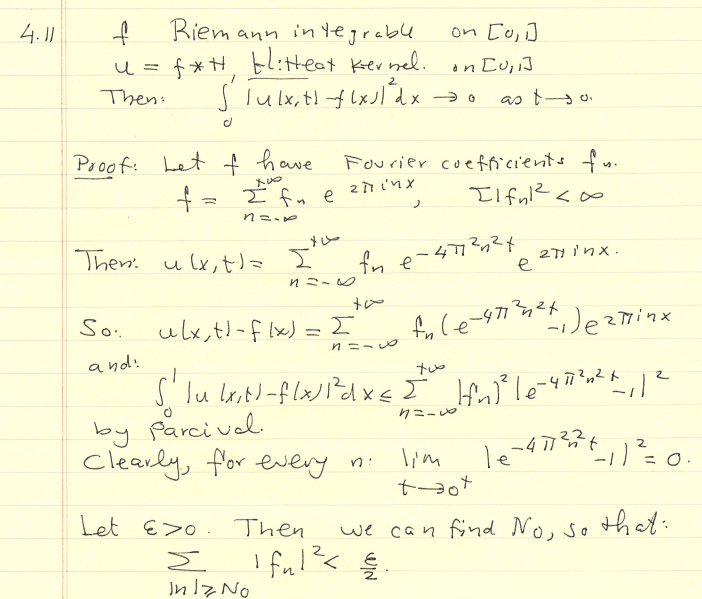 4.11 f Riemann integrable on [0,1]
u = f * H, H: Heat kernel. on [0,1]
Then: ∫₀¹ |u(x,t) - f(x)|² dx → 0 as t → 0.
Proof: Let f have Fourier coefficients fₙ.
f = Σ_{n=-∞}^{+∞} fₙ e^{2πinx}, Σ|fₙ|² < ∞
Then: u(x,t) = Σ_{n=-∞}^{+∞} fₙ e^{-4π²n²t} e^{2πinx}.
So: u(x,t) - f(x) = Σ_{n=-∞}^{+∞} fₙ (e^{-4π²n²t} - 1) e^{2πinx}
and:
∫₀¹ |u(x,t) - f(x)|² dx ≤ Σ_{n=-∞}^{+∞} |fₙ|² |e^{-4π²n²t} - 1|²
by Parcival.
Clearly, for every n: lim_{t→0⁺} |e^{-4π²n²t} - 1|² = 0.
Let ε>0. Then we can find N₀, so that:
Σ_{|n|≥N₀} |fₙ|² < ε/2.